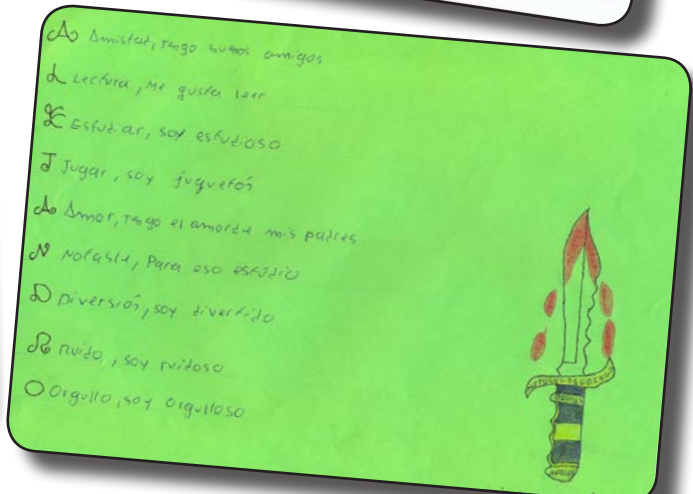 A Amistad, tengo buenos amigos
L Lectura, Me gusta leer
E Estudiar, soy estudioso
J Jugar, soy juguetón
A Amor, tengo el amor de mis padres
N Notable, Para eso estúdio
D Diversión, soy divertido
R Ruido, soy ruidoso
O Orgullo, soy orgulloso